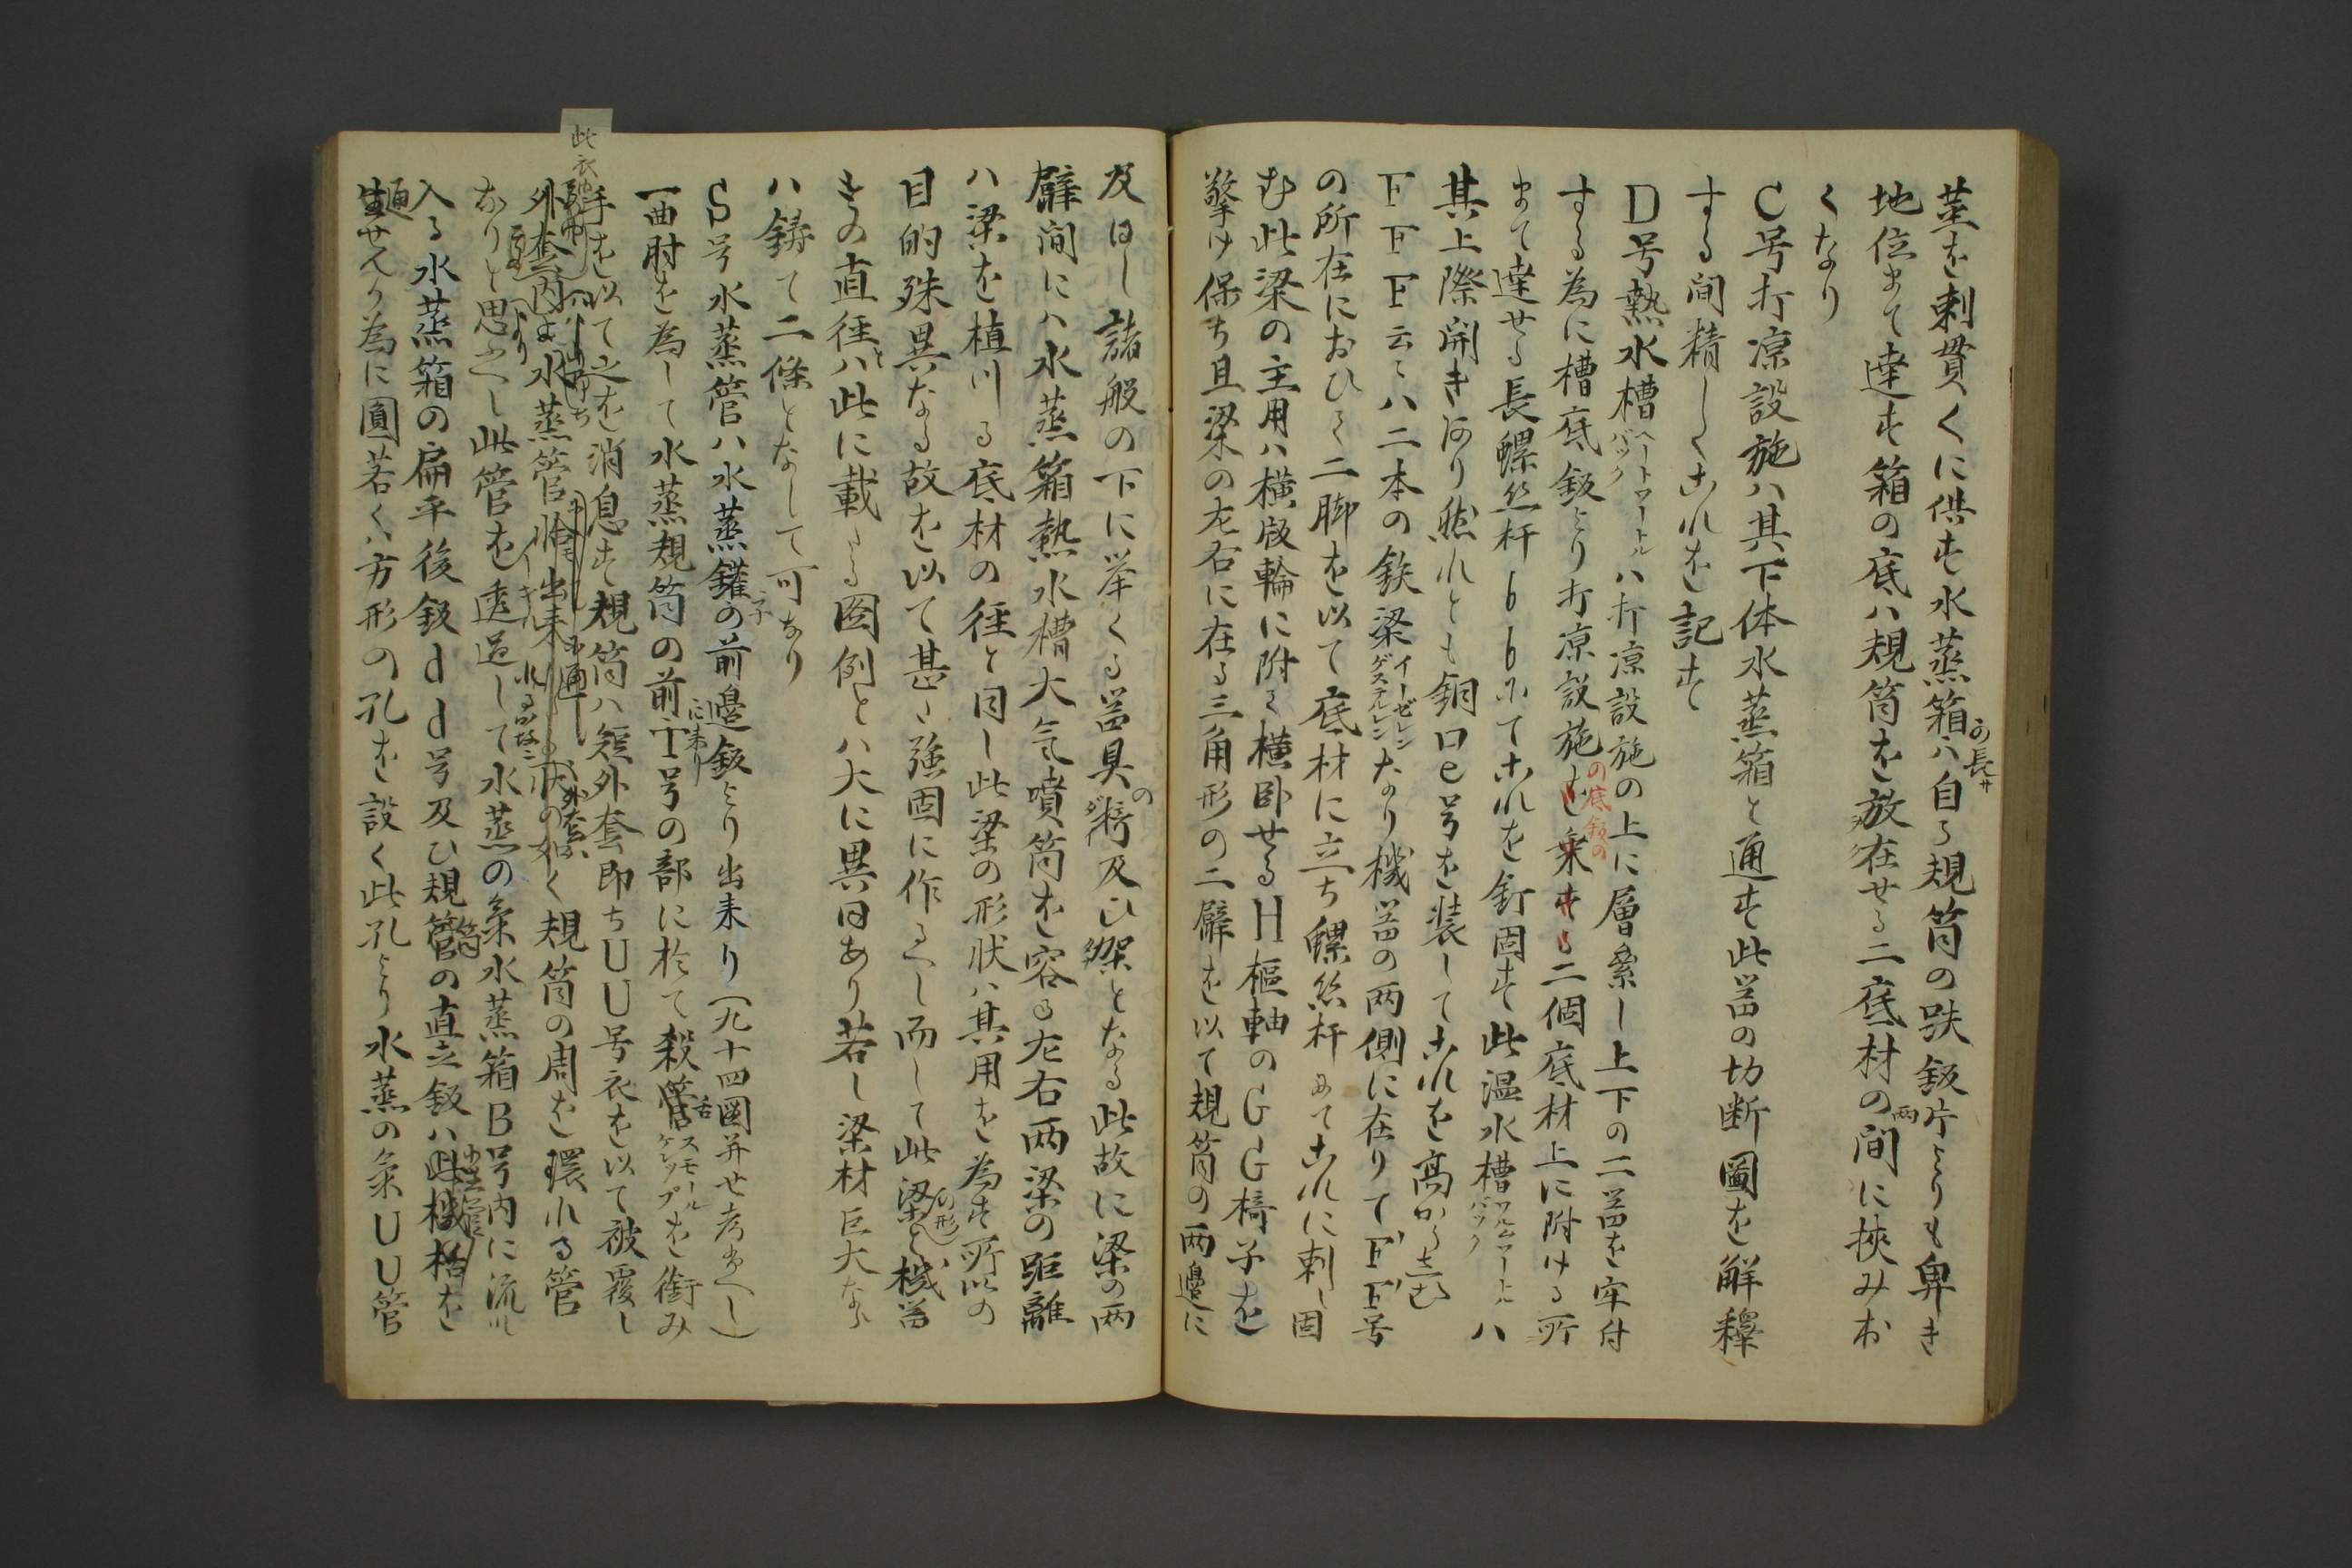 茎を刺貫くに供す水蒸箱の長サハ自ラ規筒の趺鈑片よりも卑き
地位まて達す箱の底ハ規筒を放在せる二底材の両間に挾みお
くなり
C号打凉設施ハ其下体水蒸箱と通す此器の切断圖を解釋
する間精しくこれを記す
D号熱水槽ヘートワートルバックハ打凉設施の上に層絫し上下の二器を牢付
する為に槽底鈑より打凉設施の底鈑の二個底材上に附ける所
まて達せる長螺丝杆bbにてこれを釘固す此温水槽ワルムワートルバックハ
其上際開き河り然れとも銅口e号を装してこれを高からしむ
FFF云々ハ二本の鉄梁イーゼレンゲステルレンなり機器の両側に在りてF'F'号
の所在におひて二脚を以て底材に立ち螺丝杆にてこれに刺し固
む此梁の主用ハ横版輪に附て横卧せるH樞軸のGG椅子を
擎け保ち且梁の左右に在る三角形の二臂を以て規筒の両邊に
及ほし諸般の下に挙くる器具の臂及ひ架となる此故に梁の両
臂间にハ水蒸箱熱水槽大気噴筒を容る左右両梁の距離
ハ梁を植川る底材の徑と同し此梁の形状ハ其用を為す所以の
目的殊異なる故を以て甚た强固に作るへし而して此梁の形と機器
きの直徑とハ此に載する圖例とハ大に異同あり若し梁材巨大なら
ハ鋳て二條となして可なり
S号水蒸管ハ水蒸鑵の前邊鈑より出来り(九十四圖并せ考ふへし)
一曲肘を為して水蒸規筒の前に来りT号の部に於て殺舌スモールケレップを銜み
手を以て之を消息す規筒ハ短外套即ちUU号衣を以て被覆し
外套内 水蒸管 出来 状の如く規筒の周を環れる管
なりと思ふへし此管を透過して水蒸の气水蒸箱B号内に流れ
入る水蒸箱の扁平後鈑dd号及ひ規筒の直立鈑ハ此機栝を
通せんか為に圓若くハ方形の孔を設く此孔より水蒸の气UU管
此衣